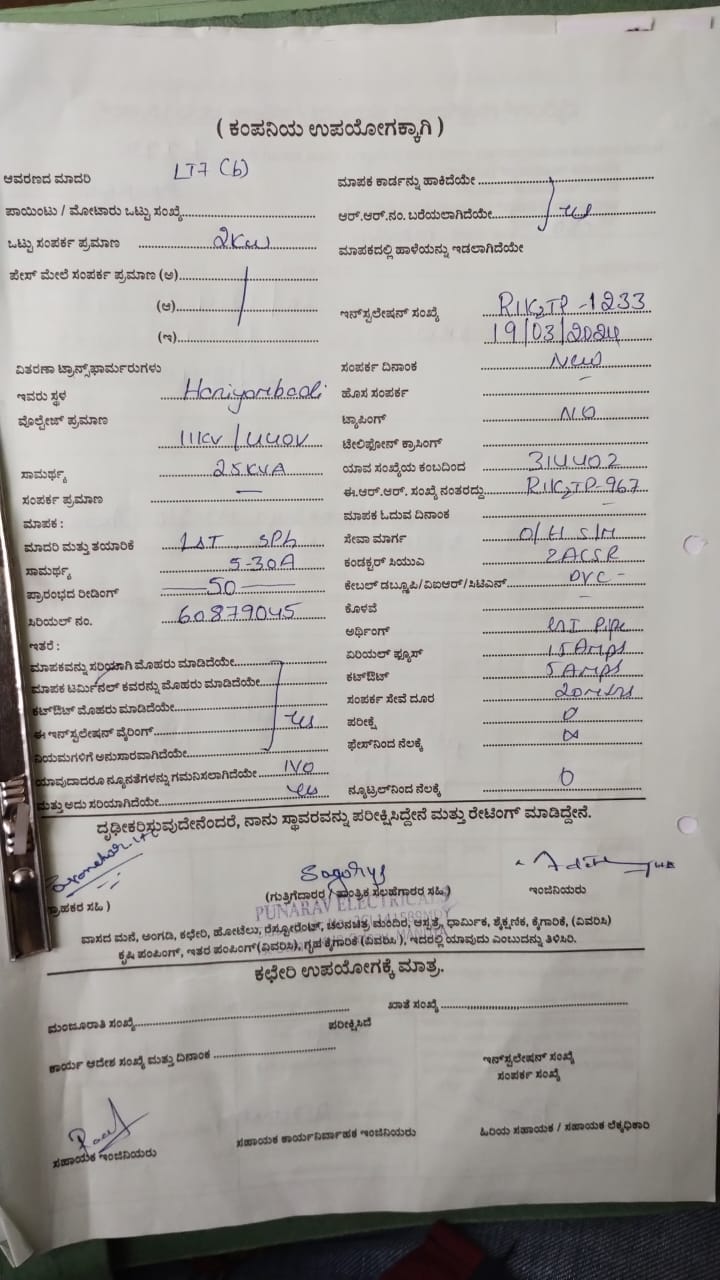 ( ಕಂಪನಿಯ ಉಪಯೋಗಕ್ಕಾಗಿ )
ಆವರಣದ ಮಾದರಿ LT7 (b)
ಪಾಯಿಂಟು / ಮೋಟಾರು ಒಟ್ಟು ಸಂಖ್ಯೆ
ಒಟ್ಟು ಸಂಪರ್ಕ ಪ್ರಮಾಣ 2KW
ಪೇಸ್ ಮೇಲೆ ಸಂಪರ್ಕ ಪ್ರಮಾಣ (ಅ)
(ಆ)
(ಇ)
ವಿತರಣಾ ಟ್ರಾನ್ಸ್‌ಫಾರ್ಮರುಗಳು
ಇವರು ಸ್ಥಳ
ವೊಲ್ಟೇಜ್ ಪ್ರಮಾಣ
11KV / 440V
ಸಾಮರ್ಥ್ಯ 25KVA
ಸಂಪರ್ಕ ಪ್ರಮಾಣ —
ಮಾಪಕ :
ಮಾದರಿ ಮತ್ತು ತಯಾರಿಕೆ L&T SPh
ಸಾಮರ್ಥ್ಯ 5-30A
ಪ್ರಾರಂಭದ ರೀಡಿಂಗ್ 50
ಸಿರಿಯಲ್ ನಂ. 60879045
ಇತರೆ :
ಮಾಪಕವನ್ನು ಸರಿಯಾಗಿ ಮೊಹರು ಮಾಡಿದೆಯೇ
ಮಾಪಕ ಟರ್ಮಿನಲ್ ಕವರನ್ನು ಮೊಹರು ಮಾಡಿದೆಯೇ
ಕಟ್‌ಔಟ್ ಮೊಹರು ಮಾಡಿದೆಯೇ
ಈ ಇನ್‌ಸ್ಟಲೇಷನ್ ವೈರಿಂಗ್ yes
ನಿಯಮಗಳಿಗೆ ಅನುಸಾರವಾಗಿದೆಯೇ
ಯಾವುದಾದರೂ ನ್ಯೂನತೆಗಳನ್ನು ಗಮನಿಸಲಾಗಿದೆಯೇ NO
ಮತ್ತು ಅದು ಸರಿಯಾಗಿದೆಯೇ yes
ಮಾಪಕ ಕಾರ್ಡನ್ನು ಹಾಕಿದೆಯೇ
ಆರ್.ಆರ್.ನಂ. ಬರೆಯಲಾಗಿದೆಯೇ yes
ಮಾಪಕದಲ್ಲಿ ಹಾಳೆಯನ್ನು ಇಡಲಾಗಿದೆಯೇ
ಇನ್‌ಸ್ಟಲೇಷನ್ ಸಂಖ್ಯೆ R1K2TP-1233
19/03/2024
ಸಂಪರ್ಕ ದಿನಾಂಕ New
ಹೊಸ ಸಂಪರ್ಕ —
ಟ್ಯಾಪಿಂಗ್ NO
ಟೆಲಿಫೋನ್ ಕ್ರಾಸಿಂಗ್
ಯಾವ ಸಂಖ್ಯೆಯ ಕಂಬದಿಂದ 314402
ಈ.ಆರ್.ಆರ್. ಸಂಖ್ಯೆ ನಂತರದ್ದು R1K2TP-967
ಮಾಪಕ ಓದುವ ದಿನಾಂಕ
ಸೇವಾ ಮಾರ್ಗ O/H S/M
ಕಂಡಕ್ಟರ್ ಸಿಯುಎ 2ACSR
ಕೇಬಲ್ ಡಬ್ಲೂಪಿ/ವಿಐಆರ್/ಸಿಟಿಎಸ್ PVC -
ಕೊಳವೆ —
ಅರ್ಥಿಂಗ್ GI Pipe
ಏರಿಯಲ್ ಫ್ಯೂಸ್ 15 Amps
ಕಟ್‌ಔಟ್ 5 Amps
ಸಂಪರ್ಕ ಸೇವೆ ದೂರ 20mtrs
ಪರೀಕ್ಷೆ 0
ಫೇಸ್‌ನಿಂದ ನೆಲಕ್ಕೆ
ನ್ಯೂಟ್ರಲ್‌ನಿಂದ ನೆಲಕ್ಕೆ 0
ದೃಢೀಕರಿಸುವುದೇನೆಂದರೆ, ನಾನು ಸ್ಥಾವರವನ್ನು ಪರೀಕ್ಷಿಸಿದ್ದೇನೆ ಮತ್ತು ರೇಟಿಂಗ್ ಮಾಡಿದ್ದೇನೆ.
ಗ್ರಾಹಕರ ಸಹಿ )
(ಗುತ್ತಿಗೆದಾರರ / ತಾಂತ್ರಿಕ ಸಲಹೆಗಾರರ ಸಹಿ)
ಇಂಜಿನಿಯರು
PUNARAV ELECTRICALS
ವಾಸದ ಮನೆ, ಅಂಗಡಿ, ಕಛೇರಿ, ಹೋಟೆಲು, ರೆಸ್ಟೋರೆಂಟ್, ಚಲನಚಿತ್ರ ಮಂದಿರ, ಆಸ್ಪತ್ರೆ, ಧಾರ್ಮಿಕ, ಶೈಕ್ಷಣಿಕ, ಕೈಗಾರಿಕೆ, (ವಿವರಿಸಿ)
ಕೃಷಿ ಪಂಪಿಂಗ್, ಇತರ ಪಂಪಿಂಗ್ (ವಿವರಿಸಿ), ಗೃಹ ಕೈಗಾರಿಕೆ (ವಿವರಿಸಿ ), ಇದರಲ್ಲಿ ಯಾವುದು ಎಂಬುದನ್ನು ತಿಳಿಸಿರಿ.
ಕಛೇರಿ ಉಪಯೋಗಕ್ಕೆ ಮಾತ್ರ.
ಮಂಜೂರಾತಿ ಸಂಖ್ಯೆ
ಖಾತೆ ಸಂಖ್ಯೆ
ಪರೀಕ್ಷಿಸಿದೆ
ಕಾರ್ಯ ಆದೇಶ ಸಂಖ್ಯೆ ಮತ್ತು ದಿನಾಂಕ
ಇನ್‌ಸ್ಟಲೇಷನ್ ಸಂಖ್ಯೆ
ಸಂಪರ್ಕ ಸಂಖ್ಯೆ
ಸಹಾಯಕ ಇಂಜಿನಿಯರು
ಸಹಾಯಕ ಕಾರ್ಯನಿರ್ವಾಹಕ ಇಂಜಿನಿಯರು
ಹಿರಿಯ ಸಹಾಯಕ / ಸಹಾಯಕ ಲೆಕ್ಕಧಿಕಾರಿ